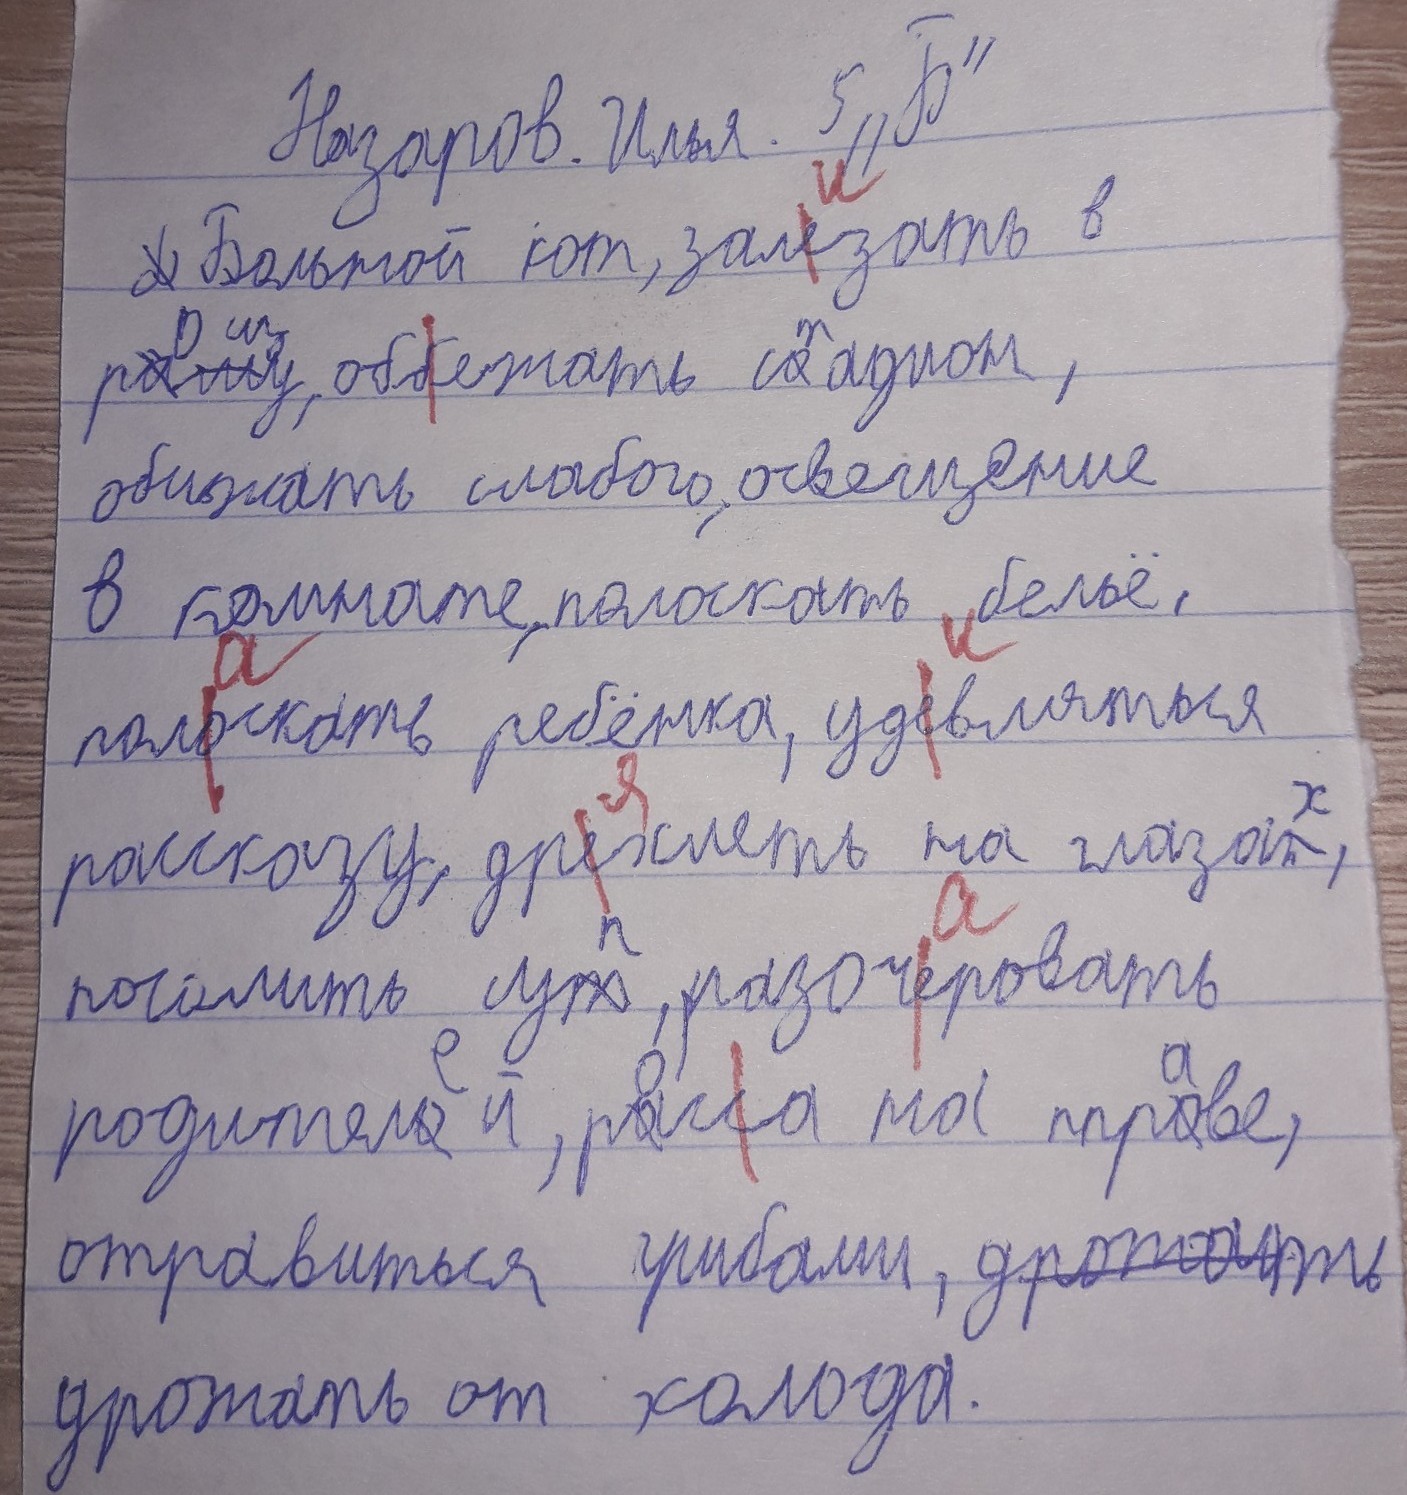 Назаров. Илья. 5 „Б"
Большой кот, залезать в
рощу, оббежать стадион,
обижать слабого, освещение
в комнате, полоскать бельё,
полоскать ребёнка, удевляться
рассказу, дрехлеть на глазах,
посолить суп, разочеровать
родителей, росса на траве,
отравиться грибами, дрожать
дрожать от холода.